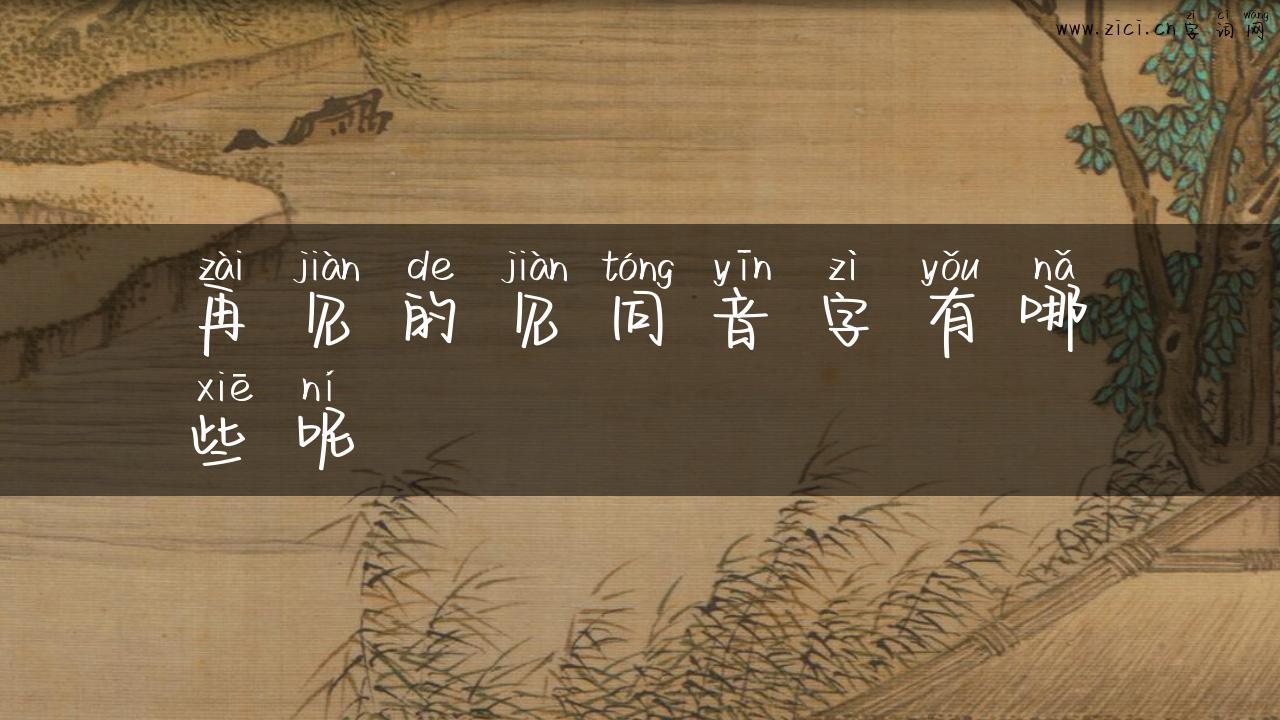 zì cí wǎng
www.zici.cn字词网
zài jiàn de jiàn tóng yīn zì yǒu nǎ
再见的见同音字有哪
xiē ní
些呢